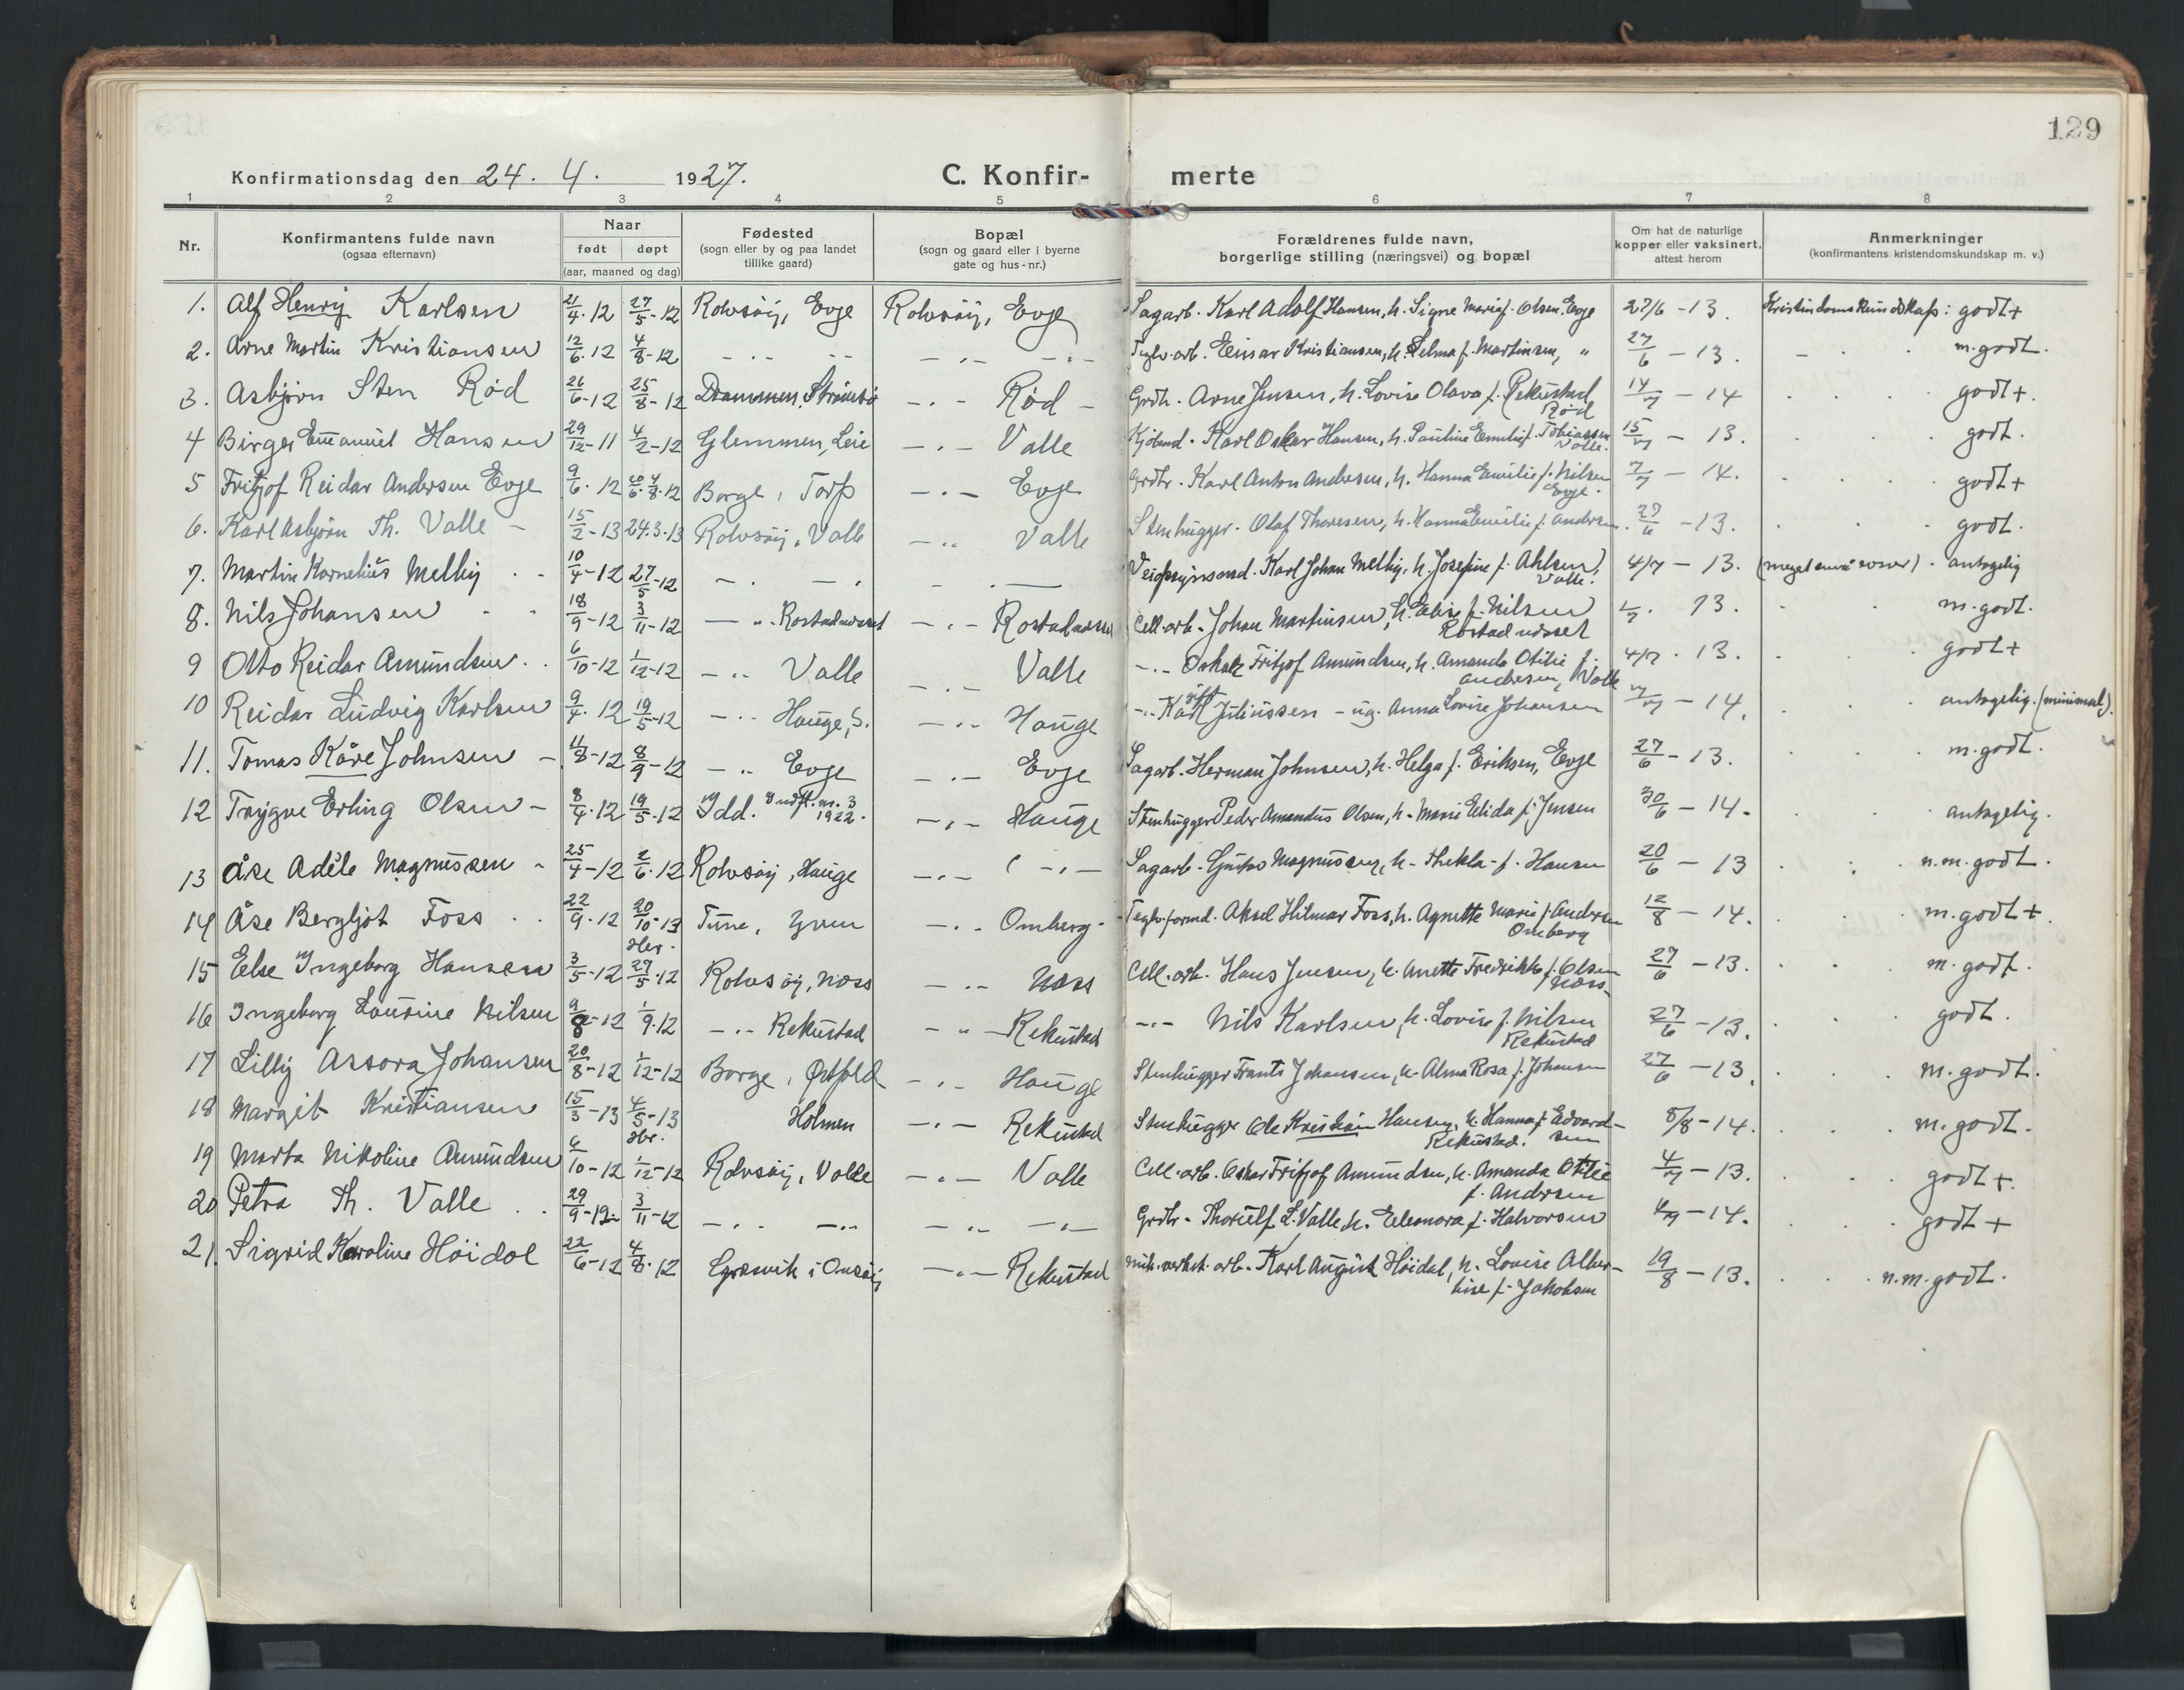 129
Konfirmationsdag den 24. 4. 1927. C. Konfir- merte
1 2 3 4 5 6 7 8
Nr. Konfirmantens fulde navn (ogsaa efternavn) Naar født døpt (aar, maaned og dag) Fødested (sogn eller by og paa landet tillike gaard) Bopæl (sogn og gaard eller i byerne gate og hus-nr.) Forældrenes fulde navn, borgerlige stilling (næringsvei) og bopæl Om hat de naturlige kopper eller vaksinert, attest herom Anmerkninger (konfirmantens kristendomskundskap m. v.)
1. Alf Henry Karlsen 21/4-12 27/5-12 Rolvsøy, Evje Rolvsøy, Evje Sagarb. Karl Adolf Hansen, h. Signe Marie f. Olsen. Evje 27/6-13. Kristendomskundskap: godt+
2. Arne Martin Kristiansen 12/6-12 4/8-12 -.- -.- -.- -.- Teglv.arb. Einar Kristiansen, h. Selma f. Martinsen, " 27/6-13. m. godt.
3. Asbjørn Sten Rød 26/6-12 25/8-12 Drammen, Strømsø -.- Rød - Grdbr. Arne Jensen, h. Lovise Olava f. Rekustad Rød 14/7-14 godt+.
4 Birger Emanuel Hansen 29/12-11 4/2-12 Glemmen, Leie -.- Valle Kjøbmd. Karl Oskar Hansen, h. Pauline Emilie f. Tobiassen Valle. 15/7-13. godt.
5 Fritjof Reidar Andersen Evje 9/6-12 4/8-12 Borge, Torp -.- Evje Grdbr. Karl Anton Andersen, h. Hanna Emilie f. Nilsen Evje. 7/7-14. godt+
6. Karl Asbjørn Th. Valle - 15/2-13 24.3-13 Rolvsøy, Valle -.- Valle Stenhugger. Olaf Thoresen, h. Hanna Emilie f. Andersen. 27/6-13. godt.
7. Martin Kornelius Melby 10/4-12 27/5-12 -.- -.- - .- Veiopsynsmd. Karl Johan Melby, h. Josefine f. Ahlsen, Valle. 4/7-13. antagelig
8. Nils Johansen 18/9-12 3/11-12 -"- Rostadneset -.- Rostadneset Cell.arb. Johan Martinsen, h. Elise f. Nilsen Rostadneset 13. m. godt.
9 Otto Reidar Amundsen 6/10-12 1/12-12 -.- Valle -.- Valle -.- Oskar Fritjof Amundsen, h. Amanda Otilie f. Andersen, Valle 4/7-13. godt+
10 Reidar Ludvig Karlsen 9/4-12 19/5-12 -.- Hauge, S. -.- Hauge -.- gift Karl Juliussen - ug. Anna Lovise Johansen 7/7-14. antagelig. (minimal).
11. Tomas Kåre Johnsen - 11/8-12 8/9-12 -.- Evje -.- Evje Sagarb. Herman Johnsen, h. Helga f. Eriksen, Evje 27/6-13. m. godt.
12 Trygve Erling Olsen - 8/4-12 19/5-12 Idd. Indfl. m. 3 1922. -.- Hauge Stenhugger Peder Amandus Olsen, h. Marie Elida f. Jensen 30/6-14. antagelig.
13 Åse Adèle Magnussen - 25/4-12 2/6-12 Rolvsøy, Hauge -.- -.- Sagarb. Magnussen, h. Thekla f. Hansen 20/6-13 n.m. godt.
14 Åse Bergljot Foss 22/9-12 20/10-13 Tune, Yven -.- Omberg - Teglv.formd. Aksel Hilmar Foss, h. Agnette Marie f. Andersen Omberg 12/8-14. m. godt+.
15 Else Ingeborg Hansen 3/5-12 27/5-12 Rolvsøy, Næss -.- Næss Cell.arb. Hans Jensen, h. Anette Fredrikke f. Olsen Næss. 27/6-13. m. godt.
16 Ingeborg Laurine Nilsen 9/8-12 1/9-12 -.- Rekustad -"- Rekustad -.- Nils Karlsen, h. Lovise f. Nilsen Rekustad 27/6-13. godt.
17 Lilly Assora Johansen 20/8-12 1/12-12 Borge, Østfold -.- Hauge Stenhugger Frants Johansen, h. Alma Rosa f. Johansen 27/6-13. m. godt.
18 Margit Kristiansen 15/3-13 4/5-13 Holmen -.- Rekustad Stenhugger Ole Kristian Hansen, h. Hanna f. Edvardsen Rekustad. 8/8-14. m. godt.
19 Marta Nikoline Amundsen 6/10-12 1/12-12 Rolvsøy, Valle -.- Valle Cell.arb. Oskar Fritjof Amundsen, h. Amanda Otilie f. Andersen 4/7-13. godt+.
20 Petra Th. Valle 29/9-12 3/11-12 -.- -.- -.- -.- Grdbr. Thorulf L. Valle, h. Eleonora f. Halvorsen 4/7-14. godt+
21. Sigrid Karoline Høidal 22/6-12 4/8-12 Græsvik i Onsøy -.- Rekustad mek.verkst.arb. Karl August Høidal, h. Lovise Albertine f. Jakobsen 19/8-13. n.m. godt.